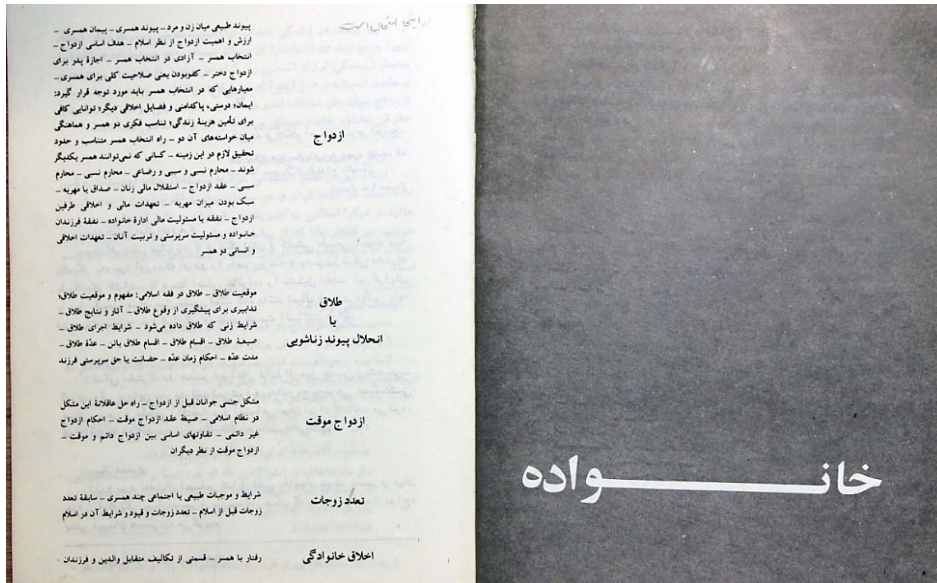 خانواده
ازدواج
پیوند طبیعی میان زن و مرد – پیوند همسری – پیمان همسری –
ارزش و اهمیت ازدواج از نظر اسلام – هدف اساسی ازدواج –
انتخاب همسر – آزادی در انتخاب همسر – اجازهٔ پدر برای
ازدواج دختر – کفوبودن یعنی صلاحیت کلی برای همسری –
معیارهایی که در انتخاب همسر باید مورد توجه قرار گیرد:
ایمان؛ درستی، پاکدامنی و فضایل اخلاقی دیگر؛ توانایی کافی
برای تأمین هزینهٔ زندگی؛ تناسب فکری دو همسر و هماهنگی
میان خواسته‌های آن دو – راه انتخاب همسر متناسب و حدود
تحقیق لازم در این زمینه – کسانی که نمی‌توانند همسر یکدیگر
شوند – محارم نسبی و سببی و رضاعی – محارم نسبی – محارم
سببی – عقد ازدواج – استقلال مالی زنان – صداق یا مهریه –
سبک بودن میزان مهریه – تعهدات مالی و اخلاقی طرفین
ازدواج – نفقه یا مسئولیت مالی ادارهٔ خانواده – نفقهٔ فرزندان
خانواده و مسئولیت سرپرستی و تربیت آنان – تعهدات اخلاقی
و انسانی دو همسر
طلاق
یا
انحلال پیوند زناشویی
موقعیت طلاق – طلاق در فقه اسلامی: مفهوم و موقعیت طلاق؛
تدابیری برای پیشگیری از وقوع طلاق – آثار و نتایج طلاق –
شرایط زنی که طلاق داده می‌شود – شرایط اجرای طلاق –
صیغهٔ طلاق – اقسام طلاق – اقسام طلاق بائن – عدّهٔ طلاق –
مدت عدّه – احکام زمان عدّه – حضانت یا حق سرپرستی فرزند
ازدواج موقت
مشکل جنسی جوانان قبل از ازدواج – راه حل عاقلانهٔ این مشکل
در نظام اسلامی – صیغهٔ عقد ازدواج موقت – احکام ازدواج
غیر دائمی – تفاوتهای اساسی بین ازدواج دائم و موقت –
ازدواج موقت از نظر دیگران
تعدد زوجات
شرایط و موجبات طبیعی یا اجتماعی چند همسری – سابقهٔ تعدد
زوجات قبل از اسلام – تعدد زوجات و قیود و شرایط آن در اسلام
اخلاق خانوادگی
رفتار با همسر – قسمتی از تکالیف متقابل والدین و فرزندان